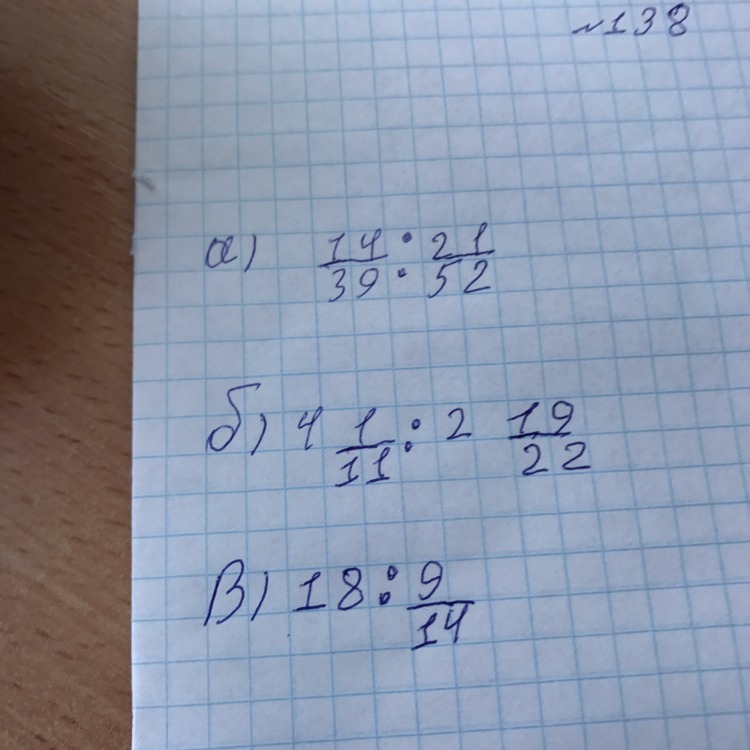 №138
а) 14/39 : 21/52
б) 4 1/11 : 2 19/22
в) 18 : 9/14